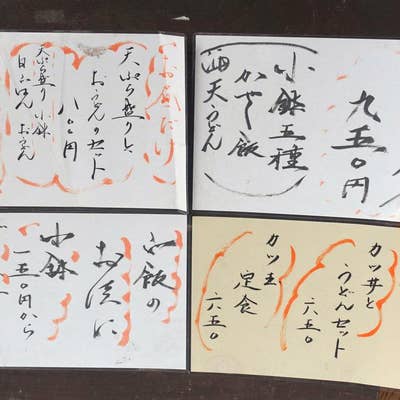 お昼だけ
天ぷら盛りと
おうどんのセット
八〇〇円
天ぷら盛り 小鉢
白ごはん おうどん
九五〇円
小鉢五種
かやく飯
海天うどん
ご飯の
お供に
小鉢
一五〇円から
カツ丼と
うどんセット
六五〇
カツ玉
定食
六五〇